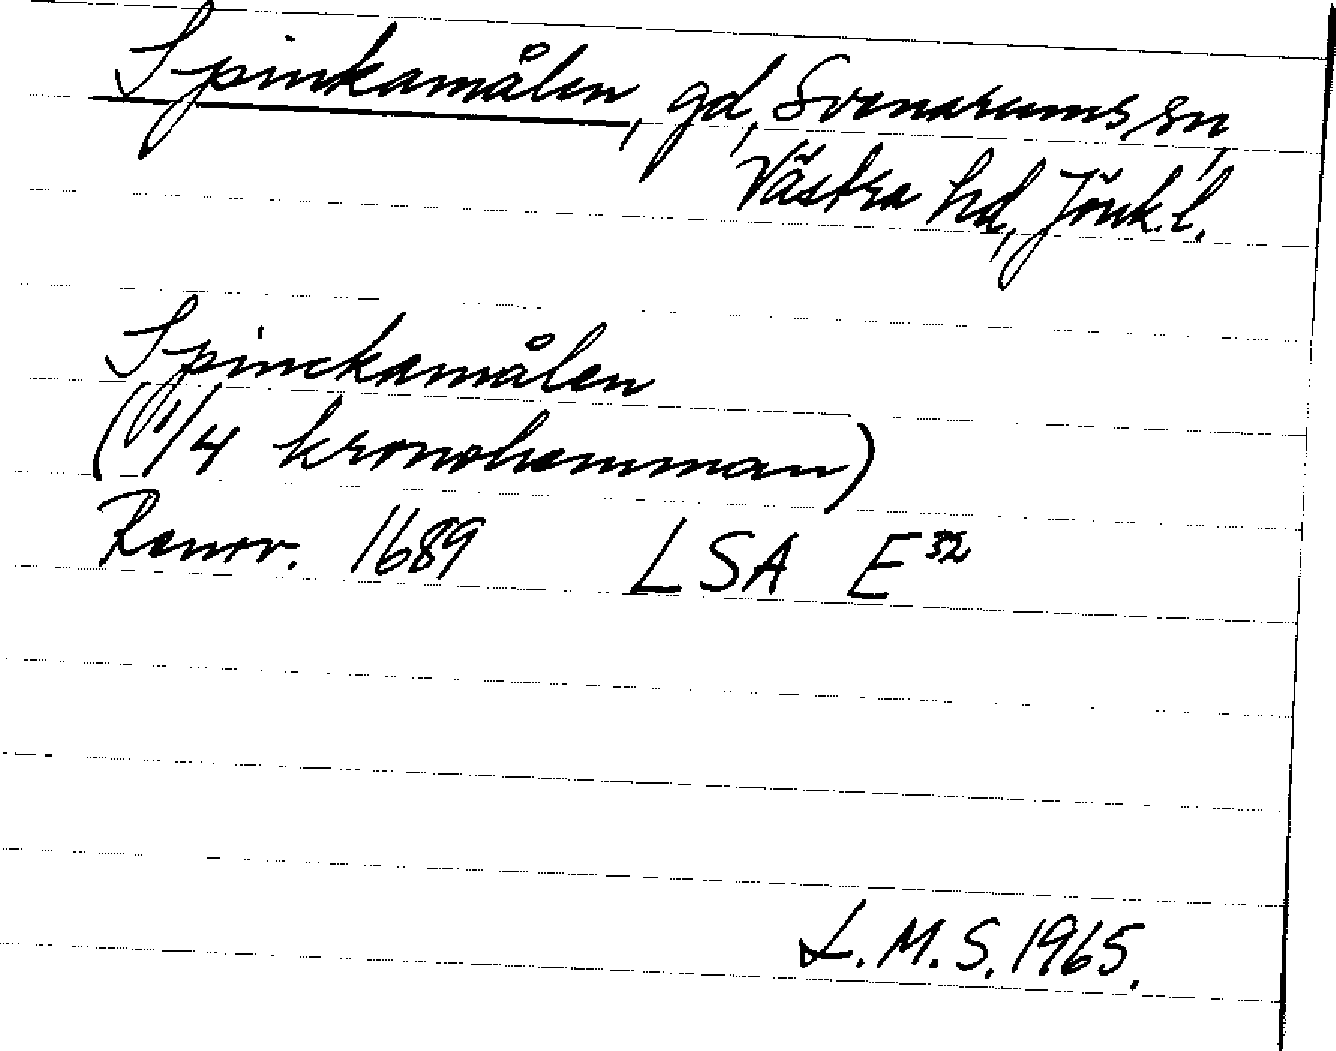 Spinkamålen, gd, Svenarums sn,
Västra hd, Jönk.l.
Spinckamålen
(1/4 kronohemman)
Renov. 1689 LSA E³²
L.M.S. 1965.